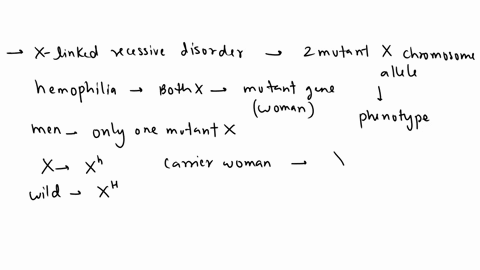 → X-linked recessive disorder → 2 mutant X chromosome
allele
↓
phenotype
hemophilia → Both X → mutant gene
(woman)
men → only one mutant X
X → Xʰ
carrier woman →
wild → Xᴴ